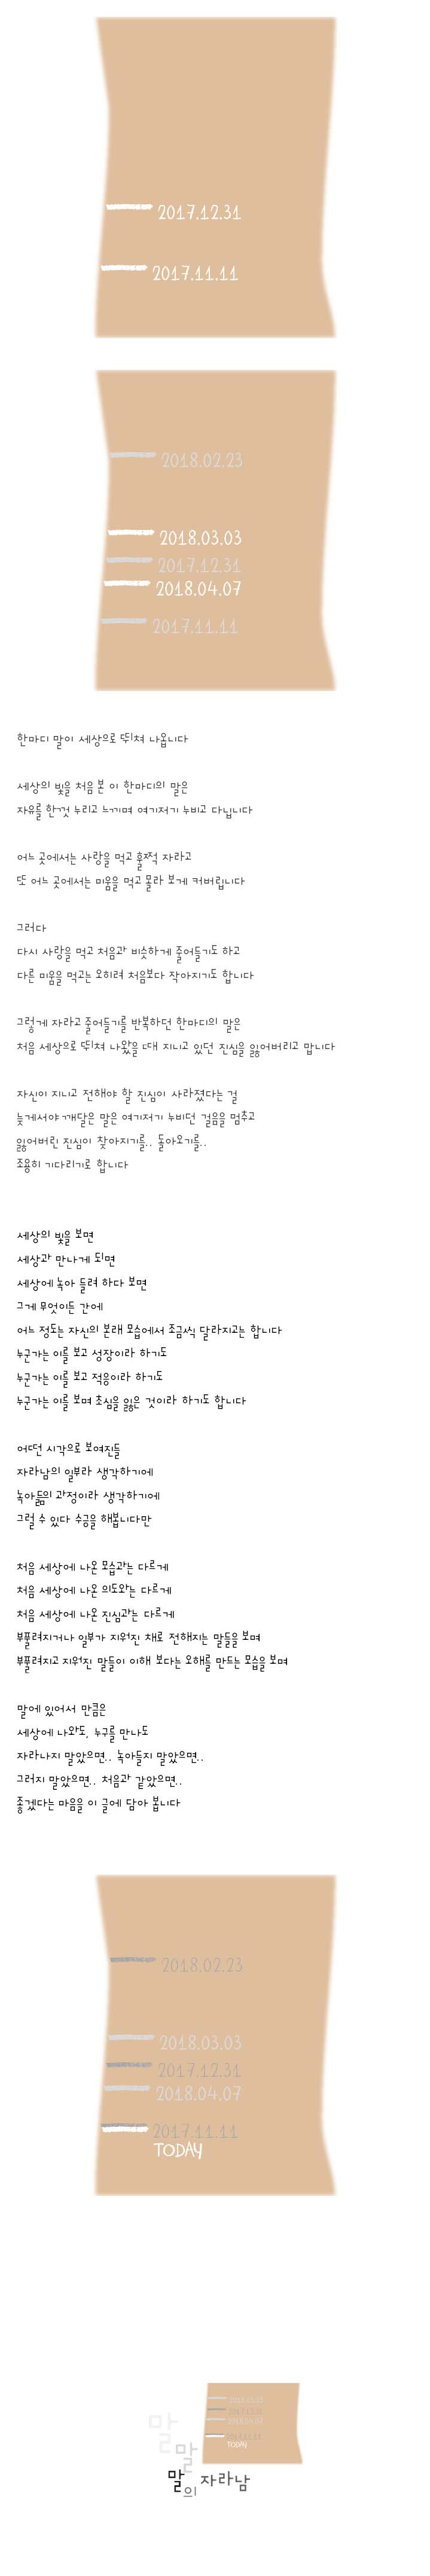 2017.12.31
2017.11.11
2018.02.23
2018.03.03
2017.12.31
2018.04.07
2017.11.11
한마디 말이 세상으로 뛰쳐 나옵니다
세상의 빛을 처음 본 이 한마디의 말은
자유를 한껏 누리고 느끼며 여기저기 누비고 다닙니다
어느 곳에서는 사랑을 먹고 훌쩍 자라고
또 어느 곳에서는 미움을 먹고 몰라 보게 커버립니다
그러다
다시 사랑을 먹고 처음과 비슷하게 줄어들기도 하고
다른 미움을 먹고는 오히려 처음보다 작아지기도 합니다
그렇게 자라고 줄어들기를 반복하던 한마디의 말은
처음 세상으로 뛰쳐 나왔을 때 지니고 있던 진심을 잃어버리고 맙니다
자신이 지니고 전해야 할 진심이 사라졌다는 걸
늦게서야 깨달은 말은 여기저기 누비던 걸음을 멈추고
잃어버린 진심이 찾아지기를.. 돌아오기를..
조용히 기다리기로 합니다
세상의 빛을 보면
세상과 만나게 되면
세상에 녹아 들려 하다 보면
그게 무엇이든 간에
어느 정도는 자신의 본래 모습에서 조금씩 달라지고는 합니다
누군가는 이를 보고 성장이라 하기도
누군가는 이를 보고 적응이라 하기도
누군가는 이를 보며 초심을 잃은 것이라 하기도 합니다
어떤 시각으로 보여진들
자라남의 일부라 생각하기에
녹아듦의 과정이라 생각하기에
그럴 수 있다 수긍을 해봅니다만
처음 세상에 나온 모습과는 다르게
처음 세상에 나온 의도와는 다르게
처음 세상에 나온 진심과는 다르게
부풀려지거나 일부가 지워진 채로 전해지는 말들을 보며
부풀려지고 지워진 말들이 이해 보다는 오해를 만드는 모습을 보며
말에 있어서 만큼은
세상에 나와도, 누구를 만나도
자라나지 말았으면.. 녹아들지 말았으면..
그러지 말았으면.. 처음과 같았으면..
좋겠다는 마음을 이 글에 담아 봅니다
2018.02.23
2018.03.03
2017.12.31
2018.04.07
2017.11.11
TODAY
2018.03.03
2017.12.31
2018.04.07
2017.11.11
TODAY
말
말
말의 자라남